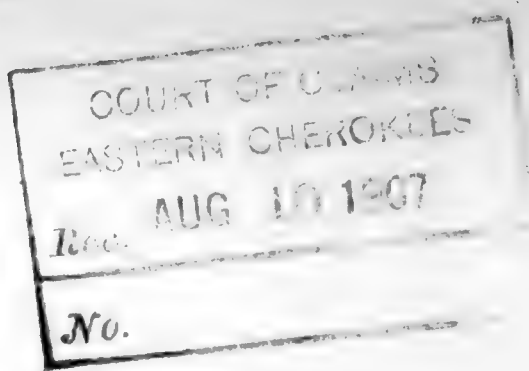 COURT OF CLAIMS
EASTERN CHEROKEES
Rec. AUG 10 1907
No.